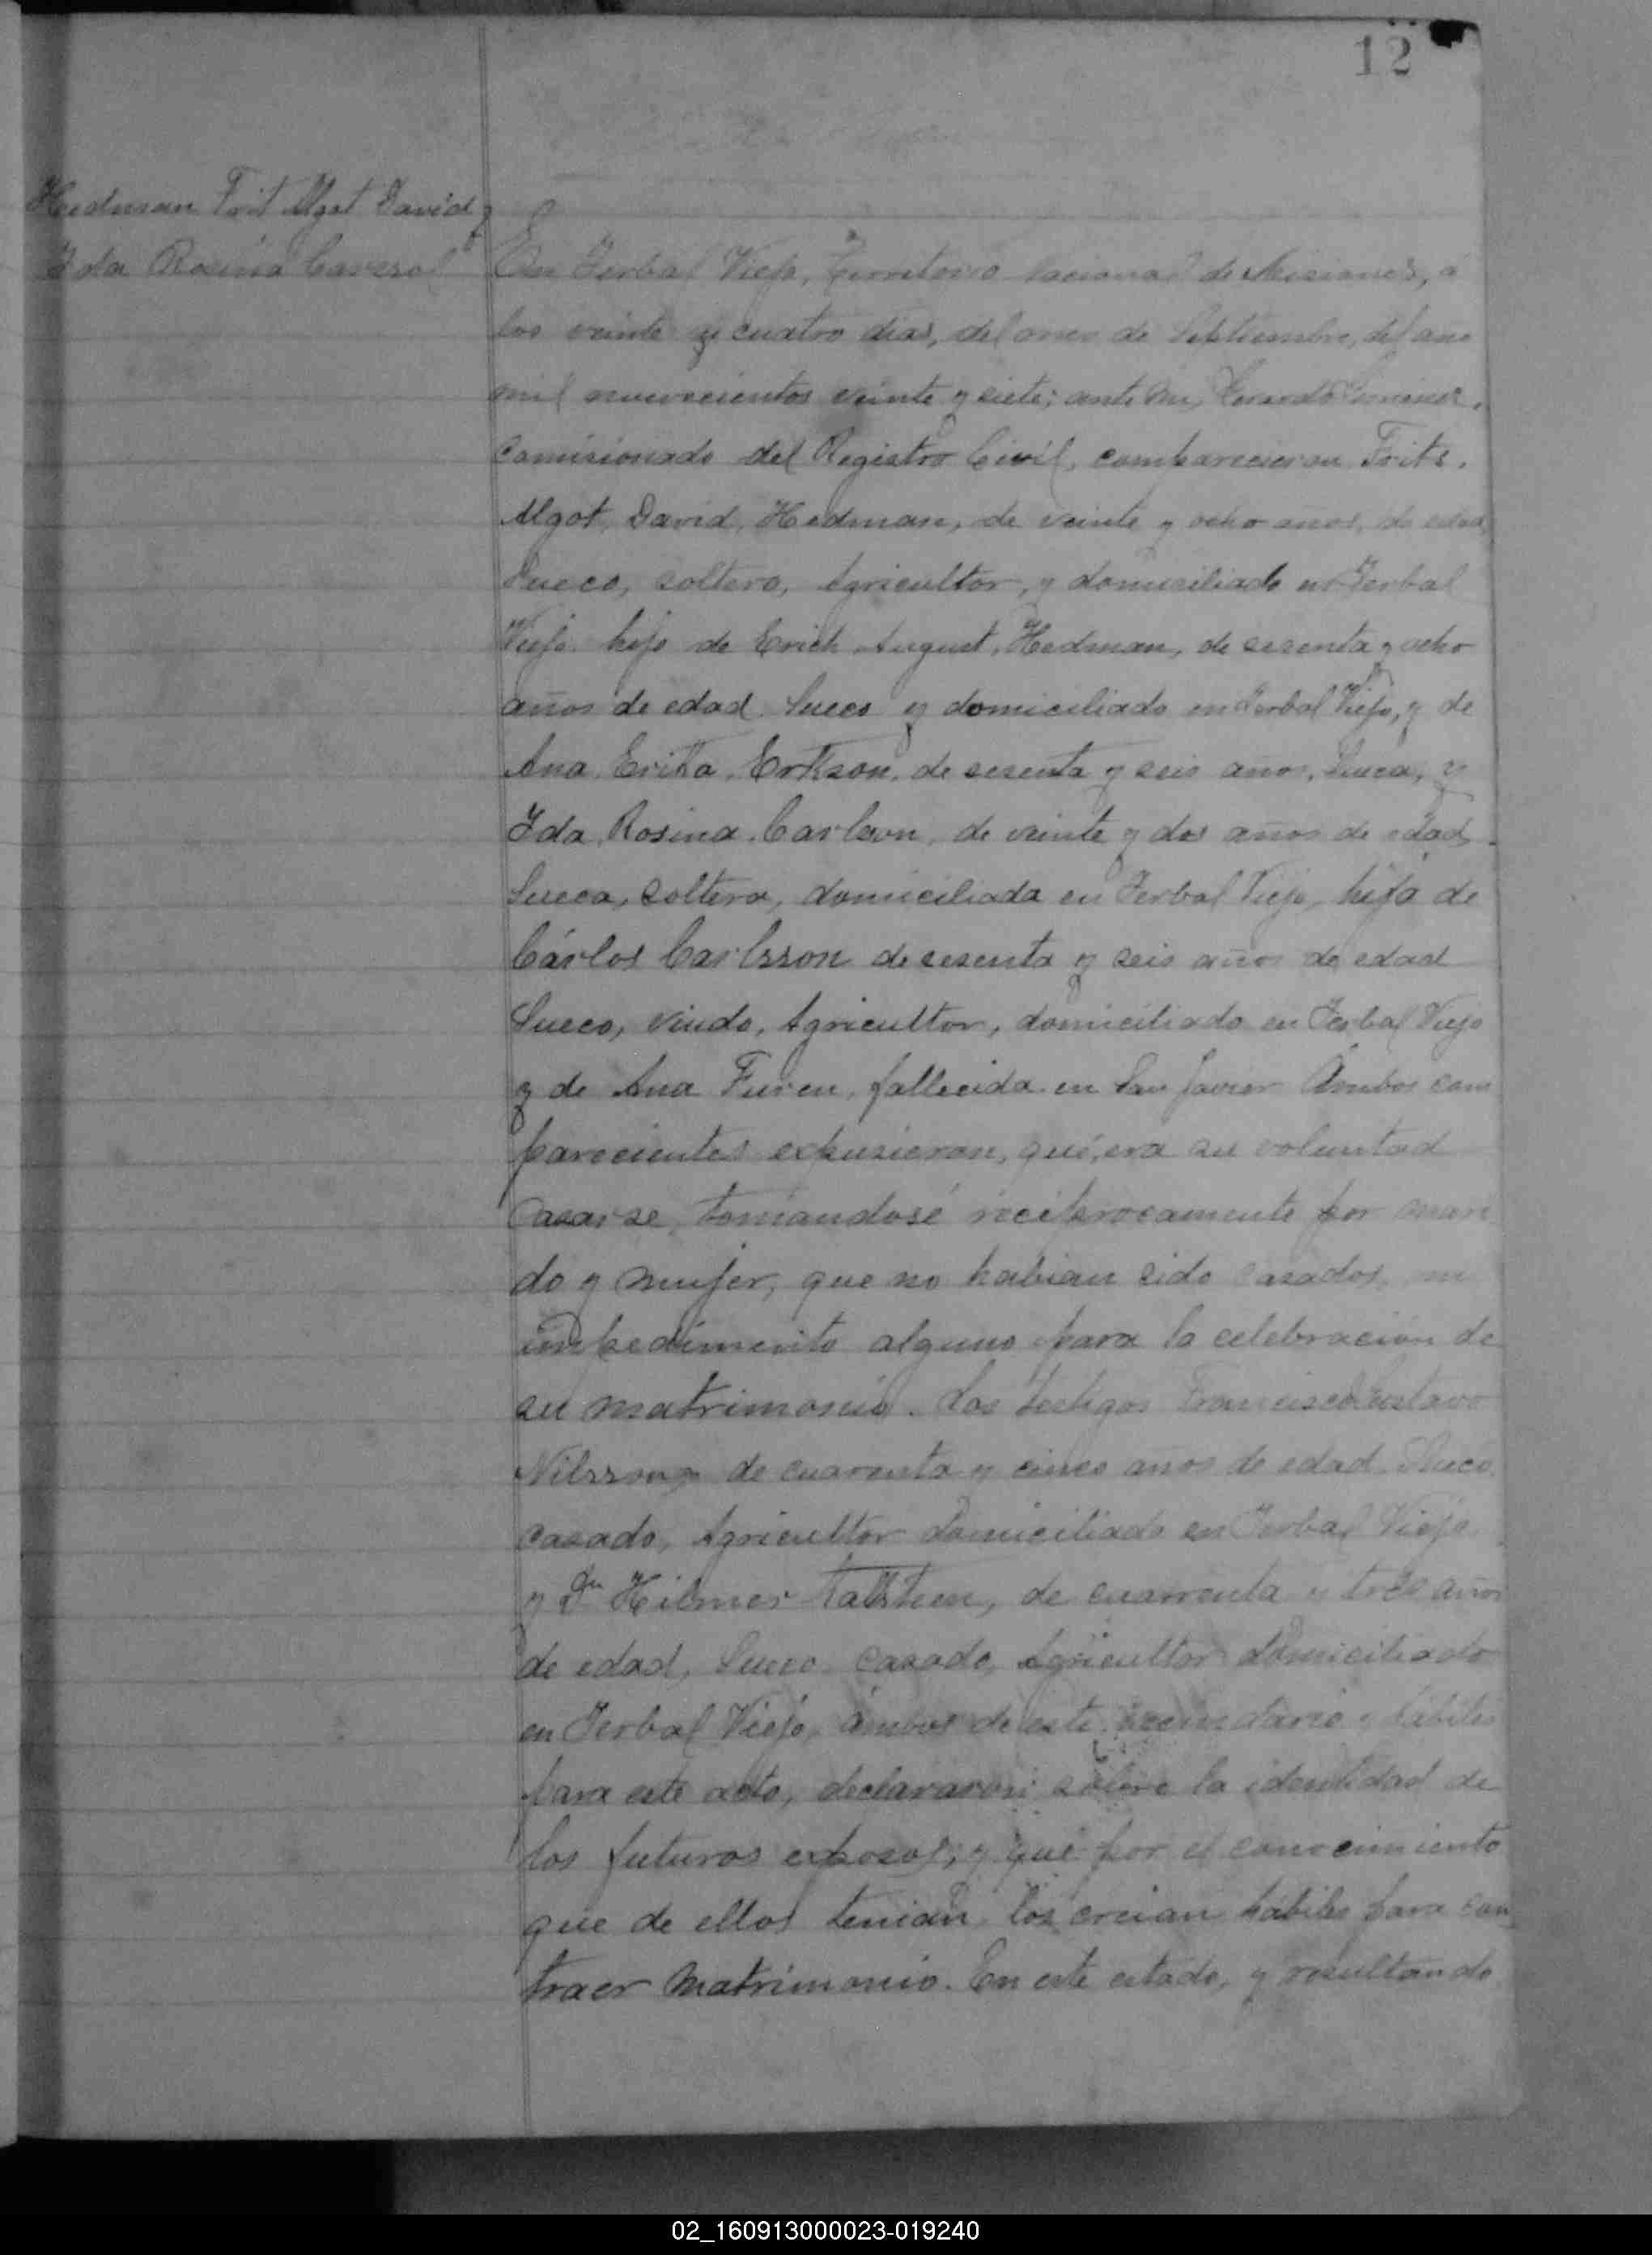 12
Hedman Frit Algot David y
Ida Rosina
En Yerbal Viejo, Territorio Nacional de Misiones, á
los veinte y cuatro dias, del mes de Septiembre, del año
mil nuevecientos veinte y siete; ante mi, Gerardo
Comisionado del Registro Civil, comparecieron Frits.
Algot, David, Hedman, de veinte y ocho años, de edad
Sueco, soltero, Agricultor, y domiciliado en Yerbal
Viejo hijo de Erich August, Hedman, de sesenta y ocho
años de edad Sueco y domiciliado en Yerbal Viejo, y de
Ana, Erika, Erkson, de sesenta y seis años, Sueca, y
Ida, Rosina, Carlson, de veinte y dos años de edad
Sueca, soltera, domiciliada en Yerbal Viejo, hija de
Cárlos Carlsson de sesenta y seis años de edad
Sueco, viudo, Agricultor, domiciliado en Yerbal Viejo
y de Ana Furen, fallecida en San Javier Ambos com
parecientes expusieron, qué, era su voluntad
Casarse, tomandosé reciprocamente por mari
do y mujer, que no habian sido casados, ni
impedimento alguno para la celebración de
su matrimonio. Los testigos Francisco Gustavo
Nilsson de cuarenta y cinco años de edad Sueco
casado, Agricultor domiciliado en Yerbal Viejo
y Dn Hilmer de cuarrenta y tres años
de edad, Sueco casado, Agricultor domiciliado
en Yerbal Viejo, ambos de este vecindario y hábiles
para este acto, declararon sobre la identidad de
los futuros esposos; y que por el conocimiento
que de ellos tenian, los creian hábiles para con
traer Matrimonio. En este estado, y resultando
02_160913000023-019240